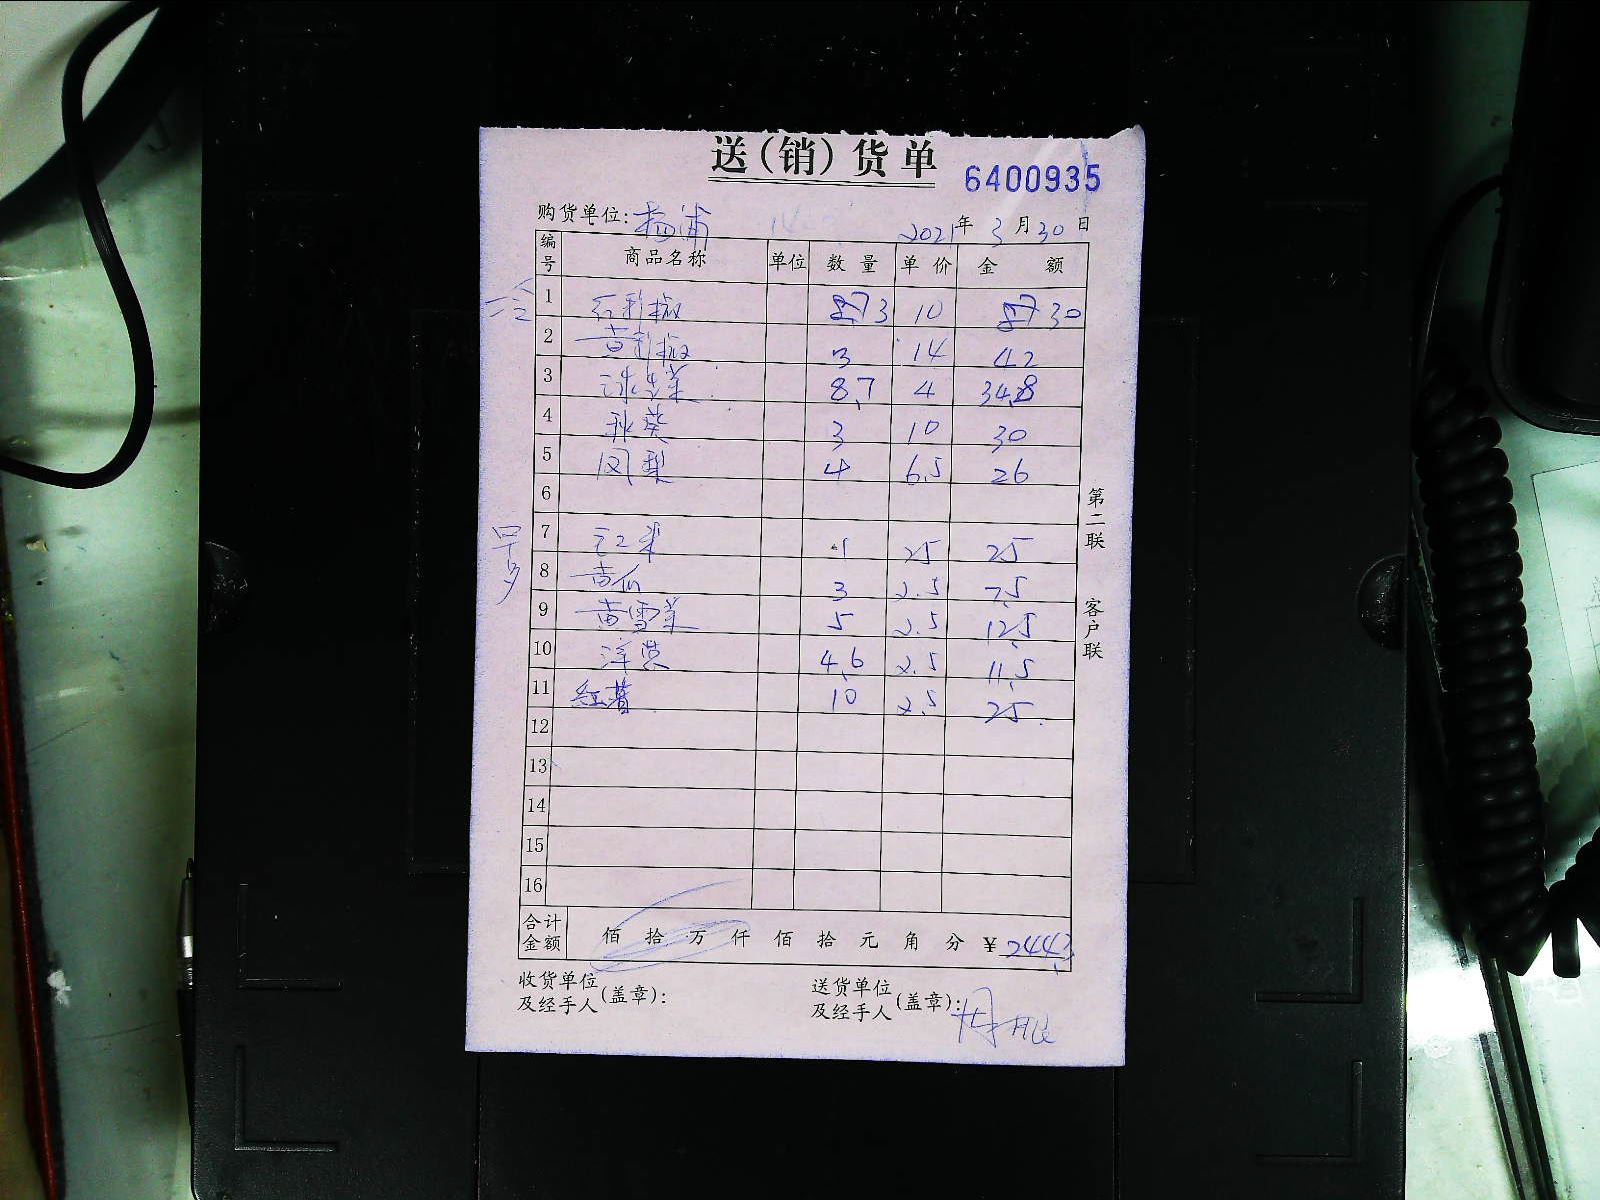 送（销）货单
6400935
购货单位：杨浦 2021年3月30日
编号 商品名称 单位 数量 单价 金额
冷
1 红彩椒 3 10 30
2 黄彩椒 3 14 42
3 冰草 8.7 4 34.8
4 秋葵 3 10 30
5 凤梨 4 6.5 26
6
7 红米 1 25 25
8 黄瓜 3 2.5 7.5
9 黄雪菜 5 2.5 12.5
10 洋芋 4.6 2.5 11.5
11 红薯 10 2.5 25
12
13
14
15
16
合计金额 佰 拾 万 仟 佰 拾 元 角 分 ¥244.3
收货单位及经手人（盖章）：
送货单位及经手人（盖章）：
第二联 客户联